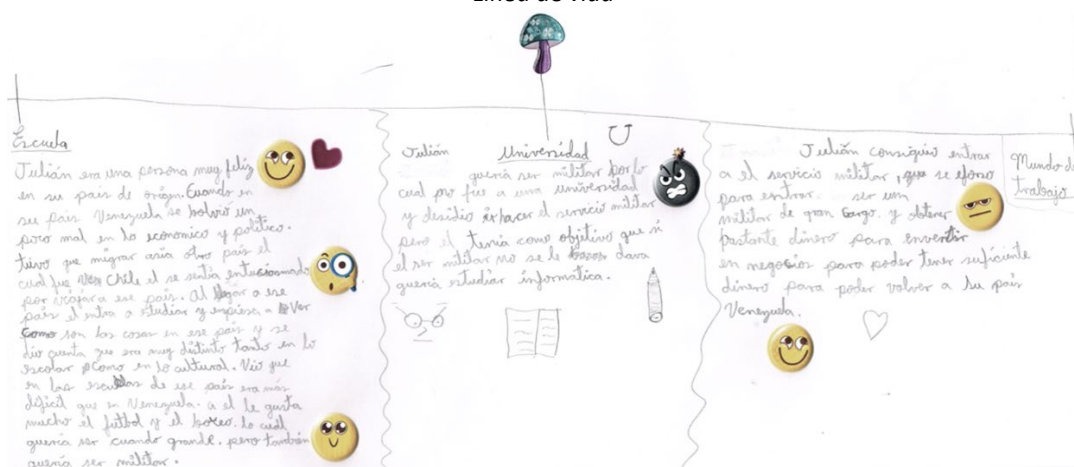 Línea de vida
Escuela
Julián era una persona muy feliz
en su país de orígen. Cuando en
su país Venezuela se bolvió un
poco mal en lo economico y político.
tuvo que migrar asia otro país el
cual fue Chile el se sentia entusiasmado
por viajar a ese país. Al llegar a ese
país el entra a estudiar y empiesa a Ver
como son las cosas en ese país y se
dio cuenta que era muy distinto tanto en lo
escolar como en lo cultural. Vió que
en las escuelas de ese país era más
difícil que en Venezuela. a el le gusta
mucho el futbol y el boxeo. lo cuál
queria ser cuando grande. pero también
queria ser militar.
Julián Universidad
queria ser militar por lo
cual no fue a una universidad
y desidio ir hacer el servicio militar
pero el tenia como objetivo que si
el ser militar no se le dava
queria estudiar informática.
Julián consiguio entrar
a el servicio militar, que se eforso
para entrar. ser un
militar de gran Cargo. y obtener
bastante dinero para envertir
en negocios para poder tener suficiente
dinero para poder volver a su país
Venezuela.
Mundo de
trabajo